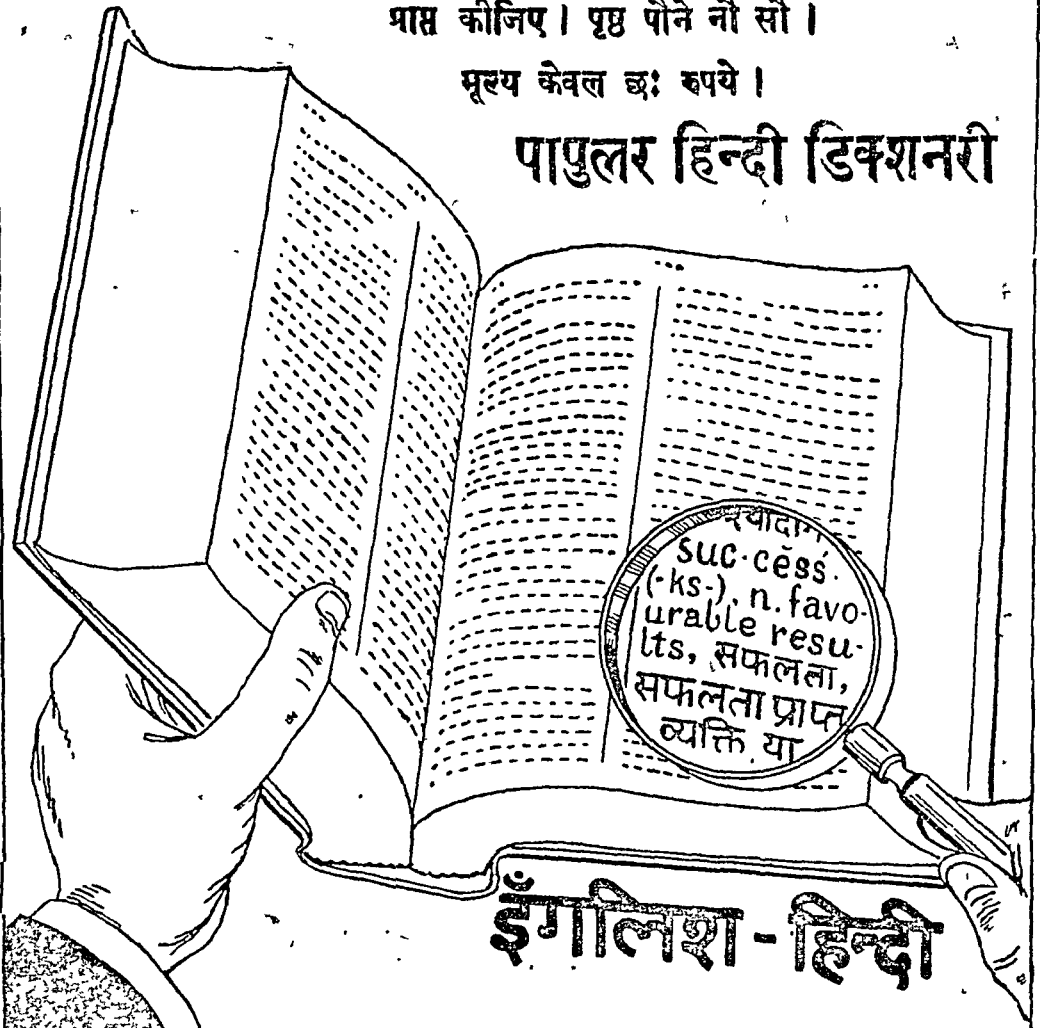 प्राप्त कीजिए। पृष्ठ पौने नौ सौ।
मूल्य केवल छः रुपये।
पापुलर हिन्दी डिक्शनरी
suc·cĕss·
(-ks-), n. favo-
urable resu-
lts, सफलता,
सफलता प्राप्त
व्यक्ति या
इँगलिश-हिन्दी